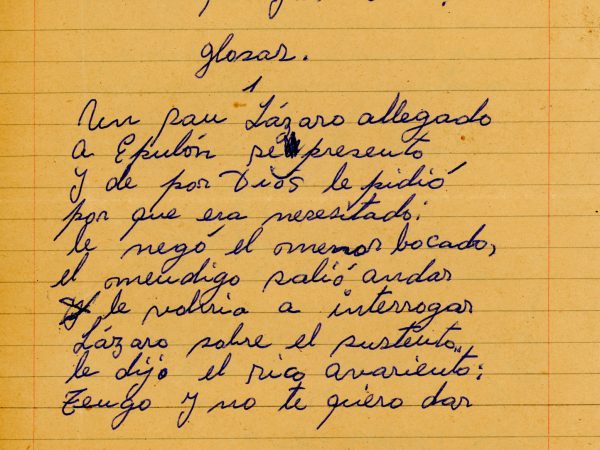 glosar.
1
Un san Lázaro allegado
A Epulón se presento
Y de por Dios le pidió
por que era nesesitado:
le negó el menor bocado,
el mendigo salió andar
le volvia a interrogar
Lázaro sobre el sustento.,
le dijo el rico avariento:
Tengo y no te quiero dar